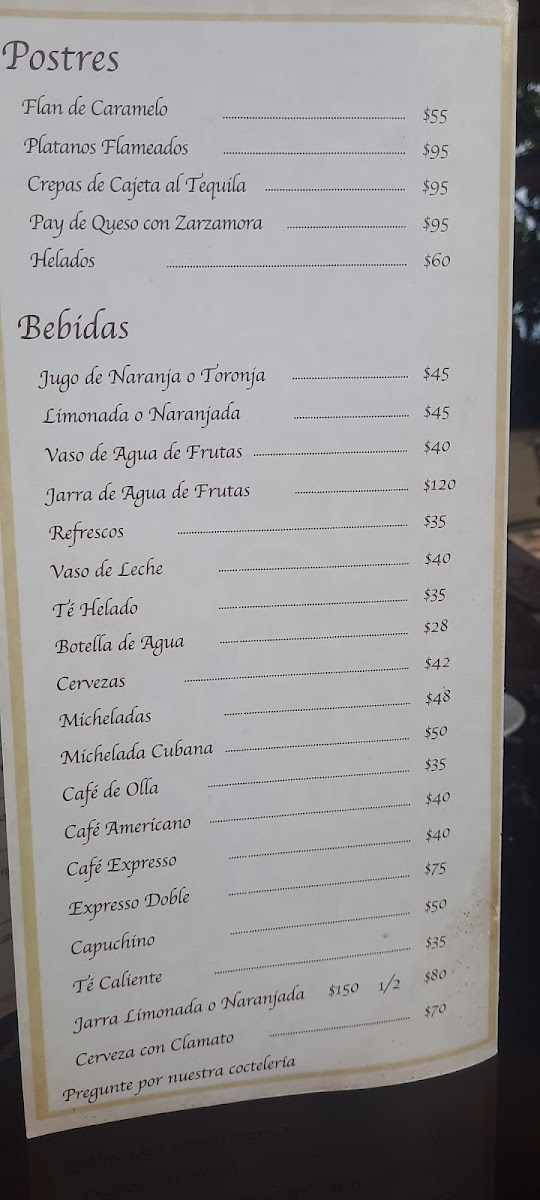 Postres
Flan de Caramelo $55
Platanos Flameados $95
Crepas de Cajeta al Tequila $95
Pay de Queso con Zarzamora $95
Helados $60
Bebidas
Jugo de Naranja o Toronja $45
Limonada o Naranjada $45
Vaso de Agua de Frutas $40
Jarra de Agua de Frutas $120
Refrescos $35
Vaso de Leche $40
Té Helado $35
Botella de Agua $28
Cervezas $42
Micheladas $48
Michelada Cubana $50
Café de Olla $35
Café Americano $40
Café Expresso $40
Expresso Doble $75
Capuchino $50
Té Caliente $35
Jarra Limonada o Naranjada $150 1/2 $80
Cerveza con Clamato $70
Pregunte por nuestra coctelería